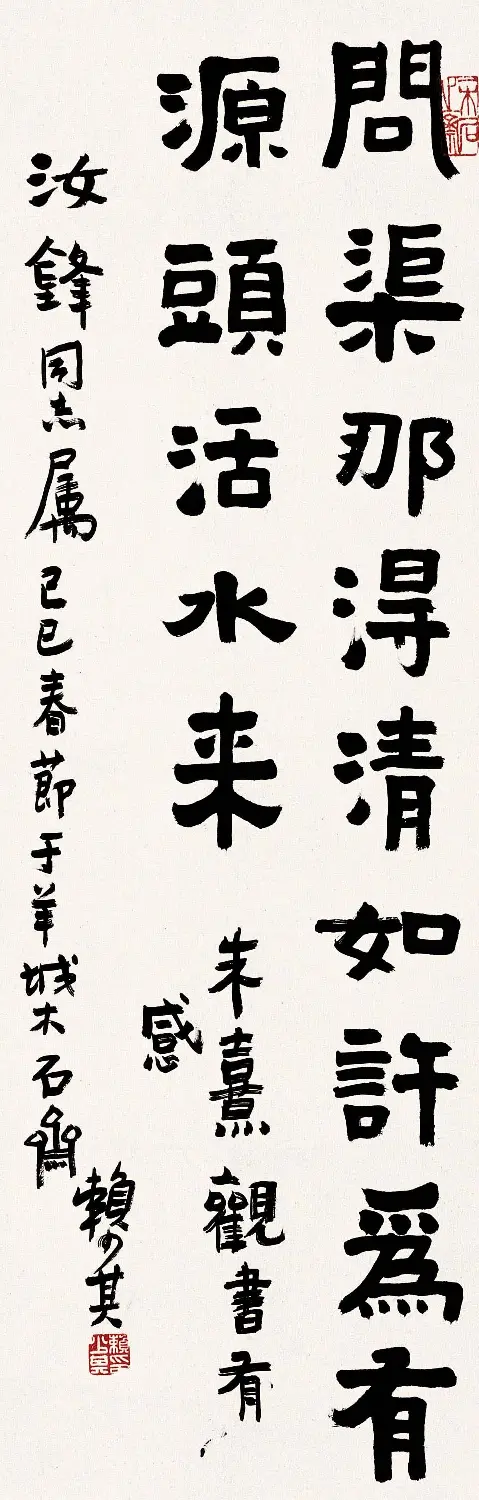 問渠那得清如許爲有
源頭活水来
朱熹觀書有
感
汝鋒同志属己巳春節于羊城木石齋
賴少其